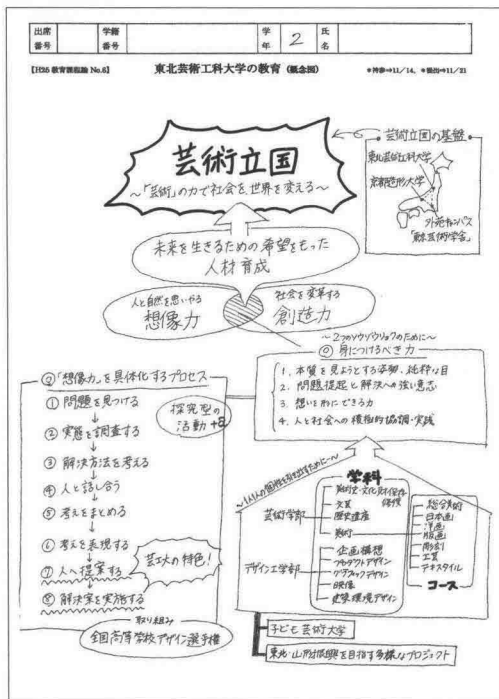 出席番号
学籍番号
学年 2
氏名
【H25 教育課程論 No.6】
東北芸術工科大学の教育 (概念図)
*持参→11/14, *提出→11/21
芸術立国
〜「芸術」の力で社会を世界を変える〜
芸術立国の基盤
東北芸術工科大学
京都造形大学
外苑キャンパス
「東京芸術学舎」
未来を生きるための希望をもった
人材育成
人と自然を思いやる
想像力
社会を変革する
創造力
〜2つのソウゾウリョクのために〜
◎身につけるべき力
1. 本質を見ようとする姿勢、純粋な目
2. 問題提起と解決への強い意志
3. 想いを形にできる力
4. 人と社会への積極的協調・実践
◎「想像力」を具体化するプロセス
① 問題を見つける
② 実態を調査する
③ 解決方法を考える
④ 人と話し合う
⑤ 考えをまとめる
⑥ 考えを表現する
⑦ 人へ提案する
⑧ 解決案を実施する
探究型の
活動
芸工大の特色!
取り組み
全国高等学校デザイン選手権
〜1人1人の個性を引き出すために〜
学科
芸術学部
文芸
歴史遺産
美術
デザイン工学部
企画構想
プロダクトデザイン
グラフィックデザイン
映像
建築・環境デザイン
総合美術
日本画
洋画
版画
彫刻
工芸
テキスタイル
コース
子ども芸術大学
東北・山形振興を目指す多様なプロジェクト